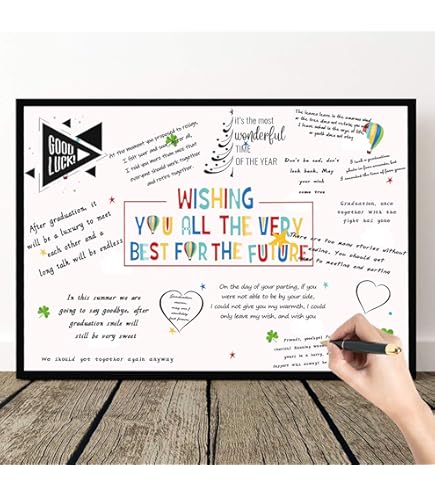 GOOD
LUCK!
At the moment you proposed to resign,
I felt
I told you more than once that
everyone should work together
and retire together.
it's the most
wonderful
TIME
OF THE YEAR
Don't be sad, don't
look back, May
your wish
come true
Graduation, once
together with the
fight has gone
After graduation, it
will be a luxury to meet
each other and a
long talk will be endless
WISHING
YOU ALL THE VERY
BEST FOR THE FUTURE
There are too many stories without
ending. You should get
to meeting and parting
In this summer we are
going to say goodbye, after
graduation smile will
still be very sweet
On the day of your parting, if you
were not able to be by your side,
I could not give you my warmth, I could
only leave my wish, and wish you
We should get together again anyway
Friends, goodbye